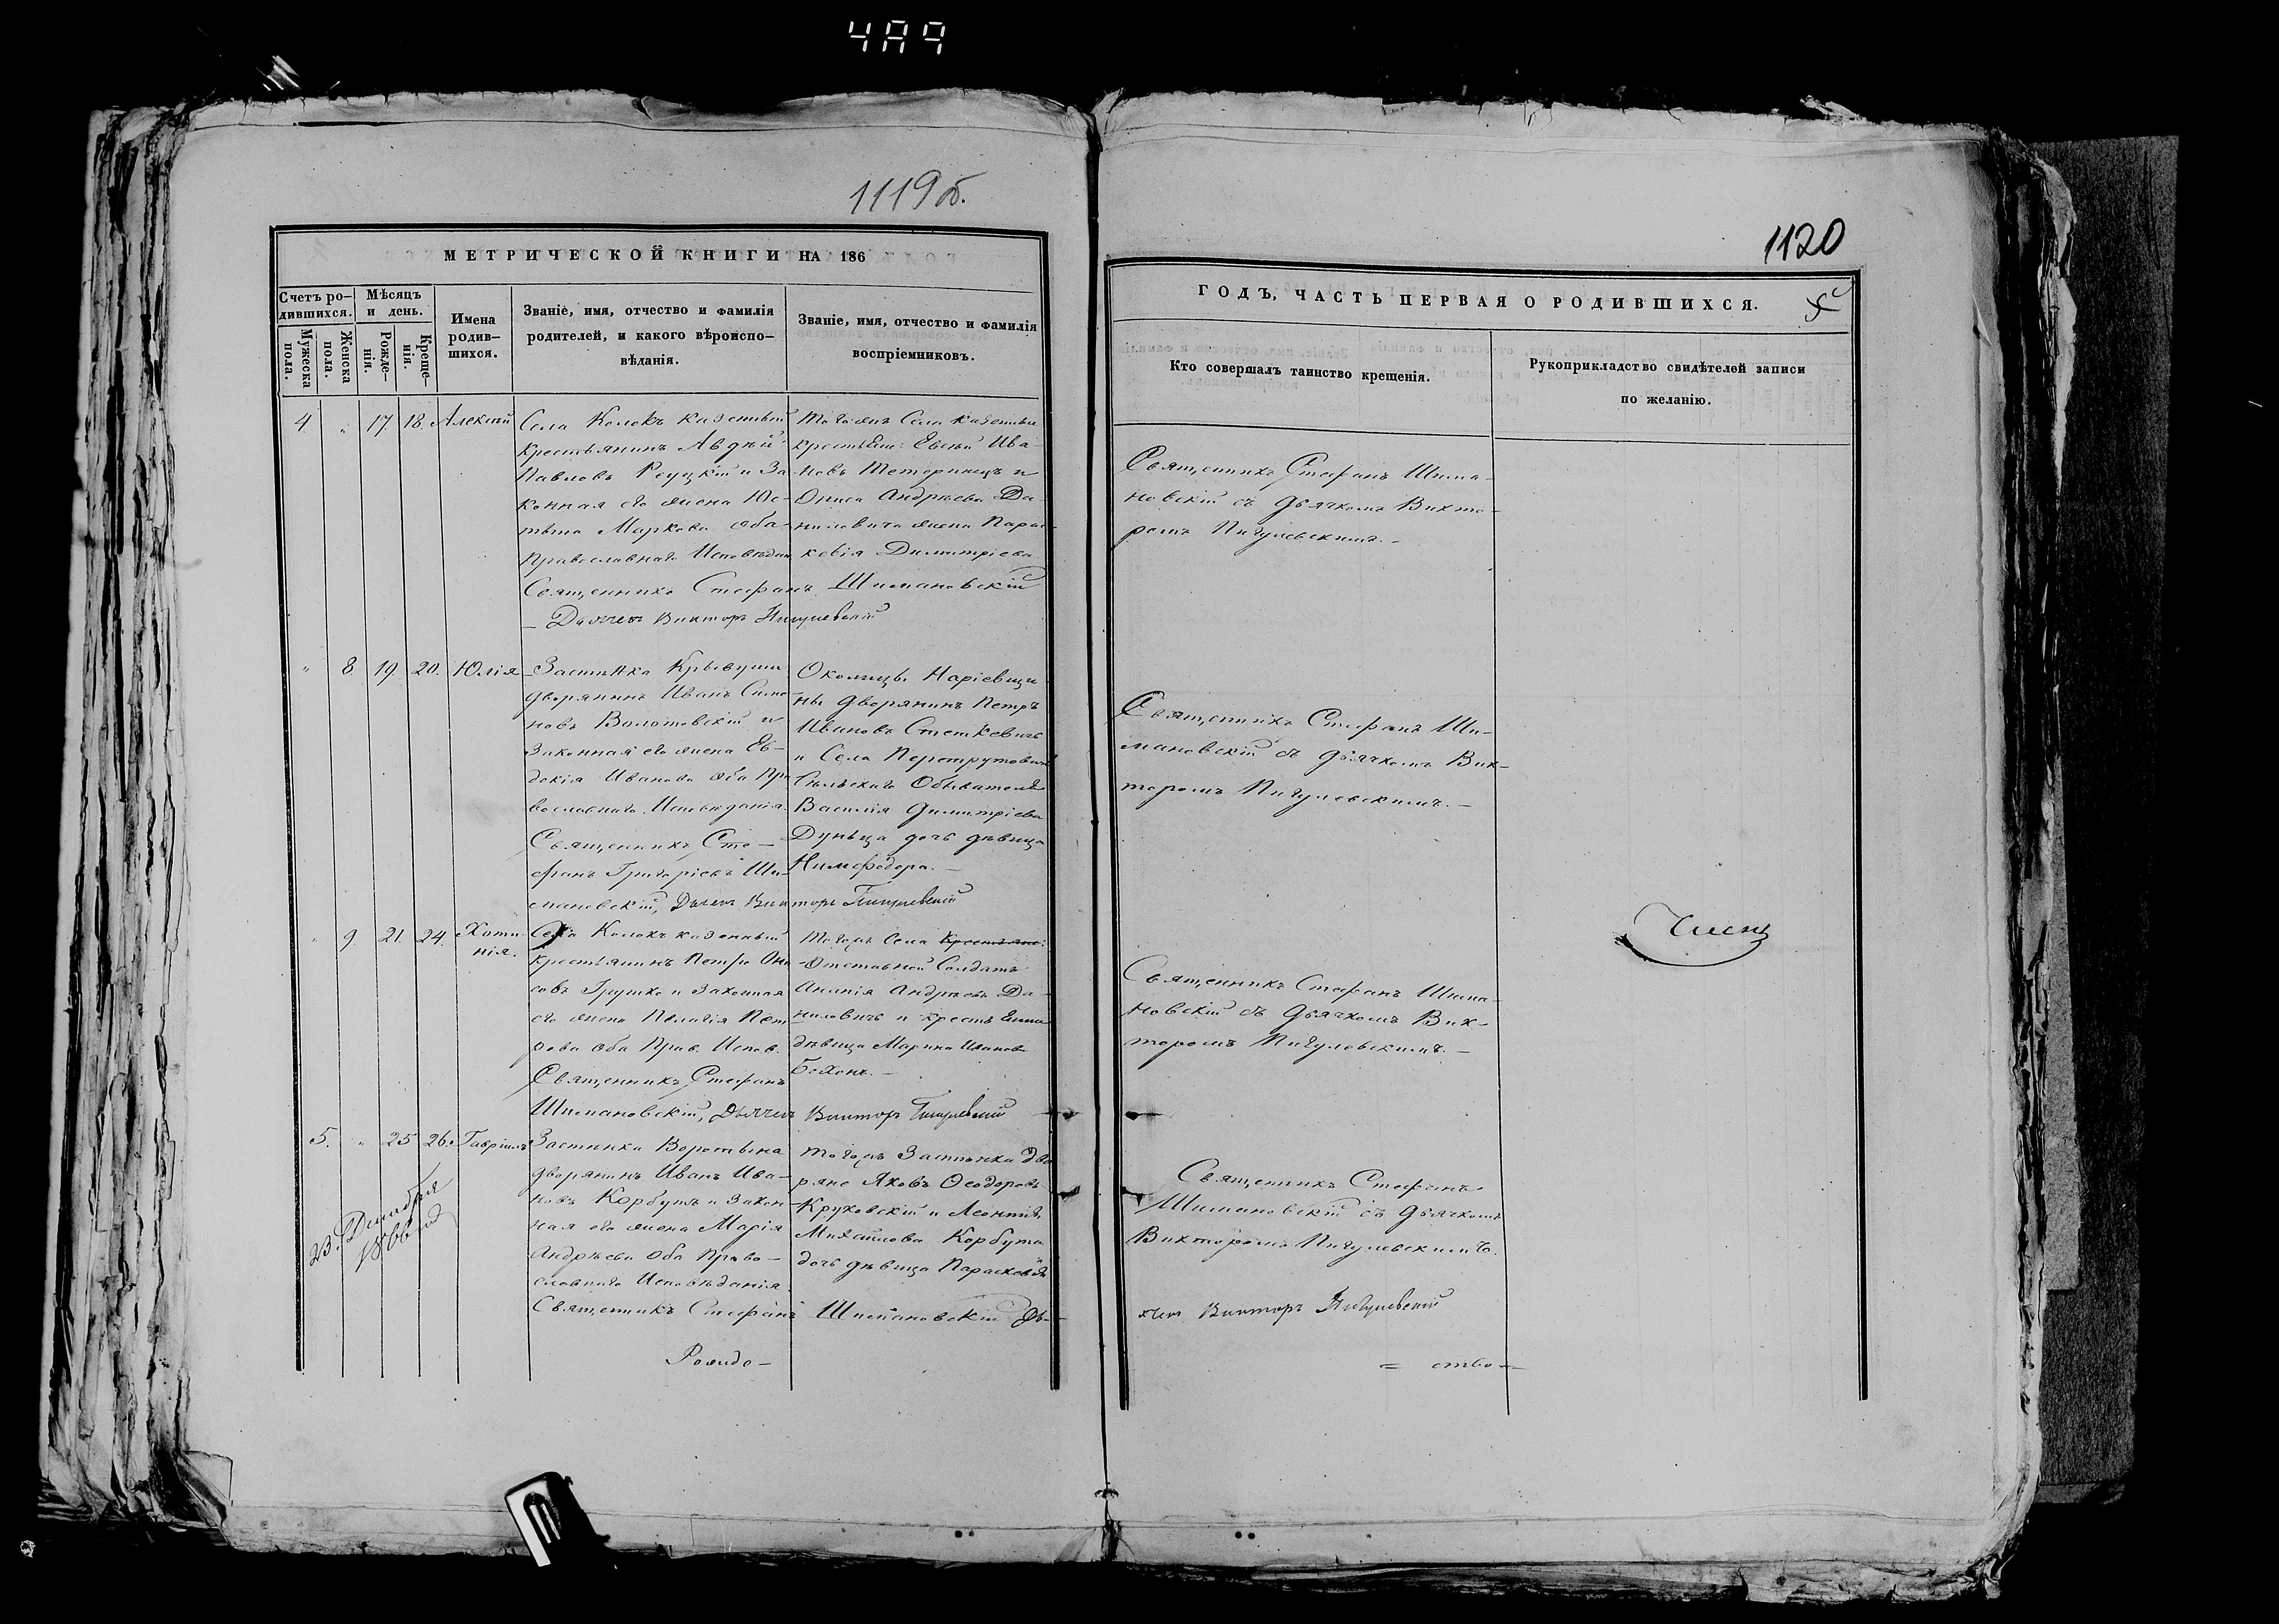 4A9
1119 об.
1120
МЕТРИЧЕСКОЙ КНИГИ НА 186
Счетъ ро-
дившихся.
Мужеска
пола.
Женска
пола.
Мѣсяцъ
и день.
Рожде-
нія.
Креще-
нія.
Имена
родив-
шихся.
Званіе, имя, отчество и фамилія
родителей, и какого вѣроиспо-
вѣданія.
Званіе, имя, отчество и фамилія
воспріемниковъ.
4. " 17. 18. Алексій
Села Колокъ казенный
крестьянинъ Авдѣй
Павловъ Реуцкій и За-
конная его жена Юс-
тына Маркова оба
православнаго Исповѣдан
Священникъ Стефанъ Шимановскій
Дьячекъ Викторъ Пигулевскій
Тогожъ Села казенные
крестьяне: Евсей Ива-
новъ Тетеринецъ и
Ониса Андрѣева Да-
ниловича жена Парас-
кевія Димитріева
" 8. 19. 20. Юлія
Застѣнка Крывуши
дворянинъ Иванъ Симо-
новъ Волотовскій и
Законная его жена Ев-
докія Иванова оба пра
вославнаго Исповѣданія.
Священникъ Сте-
фанъ Григоріевъ Ши-
мановскій, Дьячекъ Викторъ Пигулевскій
Околицы Наріевщи-
ны дворянинъ Петръ
Ивановъ Стеткевичъ
и Села Перетрутовичъ
Сельскаго Обывателя
Василія Димитріева
Дунца дочь дѣвица
Нимфодора.
" 9. 21. 24. Хоти-
нія.
Села Колокъ казенный
крестьянинъ Петръ Она
совъ Грушко и Законная
его жена Пелагія Пет
рова оба Прав. Испов.
Священникъ Стефанъ
Шимановскій, Дьячекъ Викторъ Пигулевскій
Тогожъ Села крестьяне:
Отставной Солдатъ
Ананія Андрѣевъ Да-
ниловичъ и крестьянина
дѣвица Марина Иванова
5. " 25 26. Гавріилъ
23. Декабря
1866 год
Застѣнка Воротына
дворянинъ Иванъ Ива-
новъ Корбутъ и Закон
ная его жена Марія
Андрѣева оба Право-
славнаго Исповѣданія.
Священникъ Стефанъ Шимановскій Дь-
Тогожъ Застѣнка дво
ряне Яковъ Ѳеодоровъ
Круковскій и Леонтія
Михайлова Корбута
дочь дѣвица Параскевія
Рожде-
ГОДЪ, ЧАСТЬ ПЕРВАЯ О РОДИВШИХСЯ.
Кто совершалъ таинство крещенія.
Рукоприкладство свидѣтелей записи
по желанію.
Священникъ Стефанъ Шима-
новскій съ дьячкомъ Викто-
ромъ Пигулевскимъ.-
Священникъ Стефанъ Ши-
мановскій съ дьячкомъ Вик-
торомъ Пигулевскимъ.-
Священникъ Стефанъ Шима-
новскій съ дьячкомъ Вик-
торомъ Пигулевскимъ.-
Член
Священникъ Стефанъ
Шимановскій съ дьячкомъ
Викторомъ Пигулевскимъ.
чекъ Викторъ Пигулевскій
= ство =